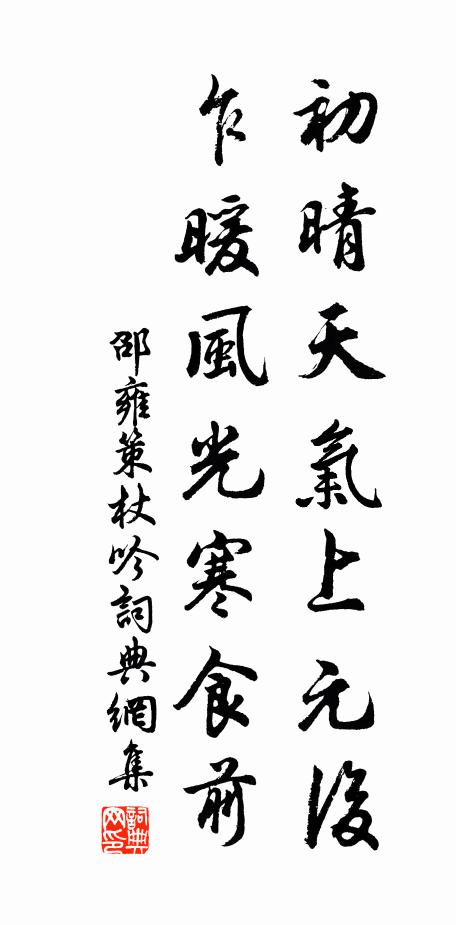 初晴天氣上元後
乍暖風光寒食前
邵雍策杖吟詞典網集
詞典网印